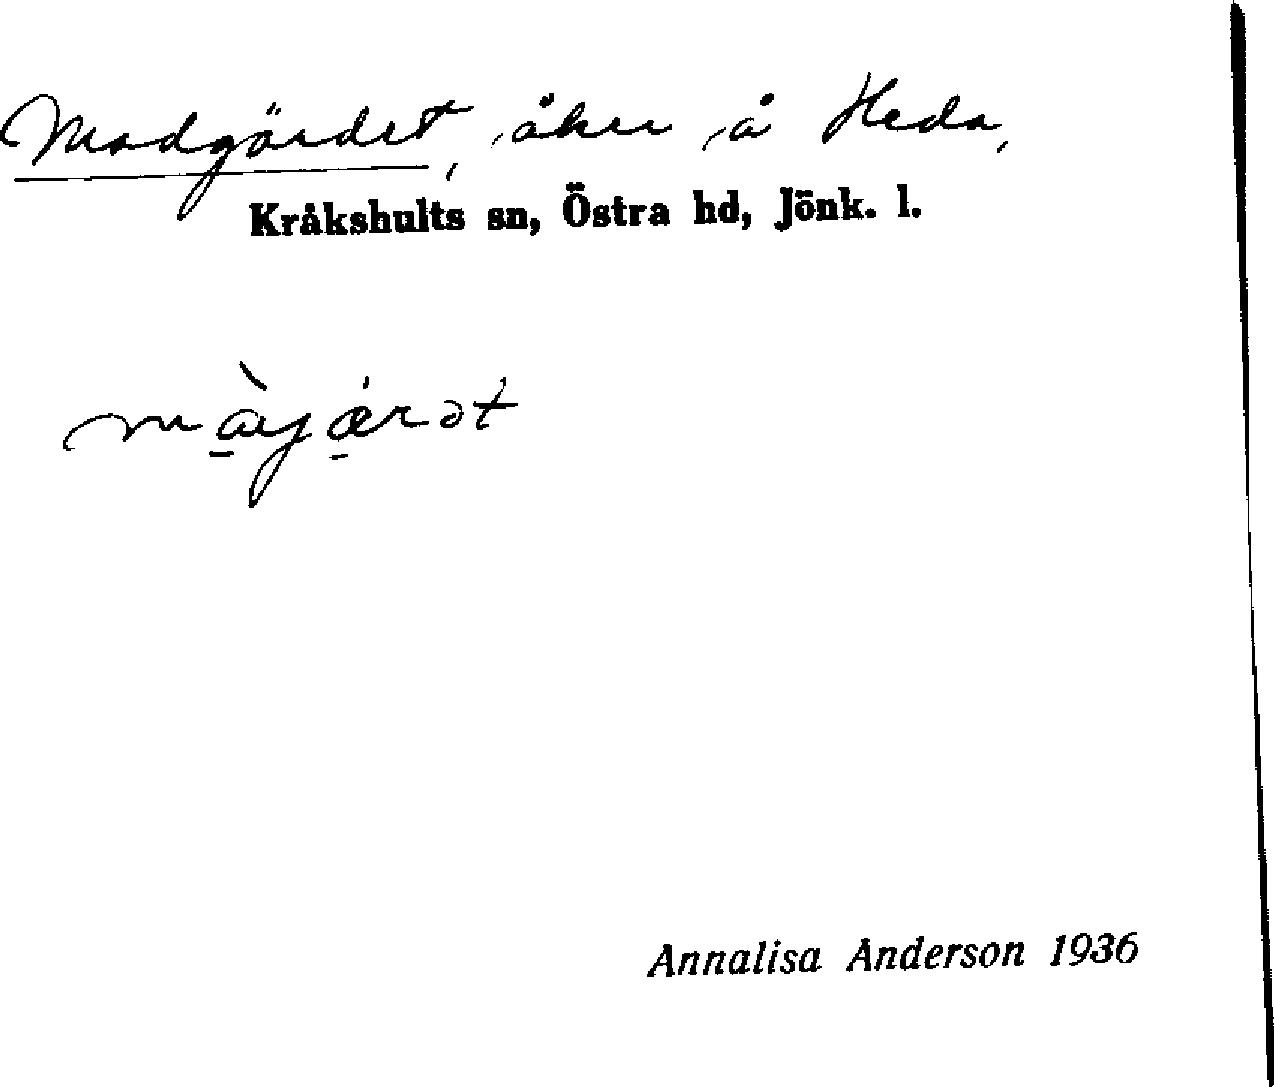 Madgärdet, åker å Heda,
Kråkshults sn, Östra hd, Jönk. l.
màjæ̀rət
Annalisa Anderson 1936